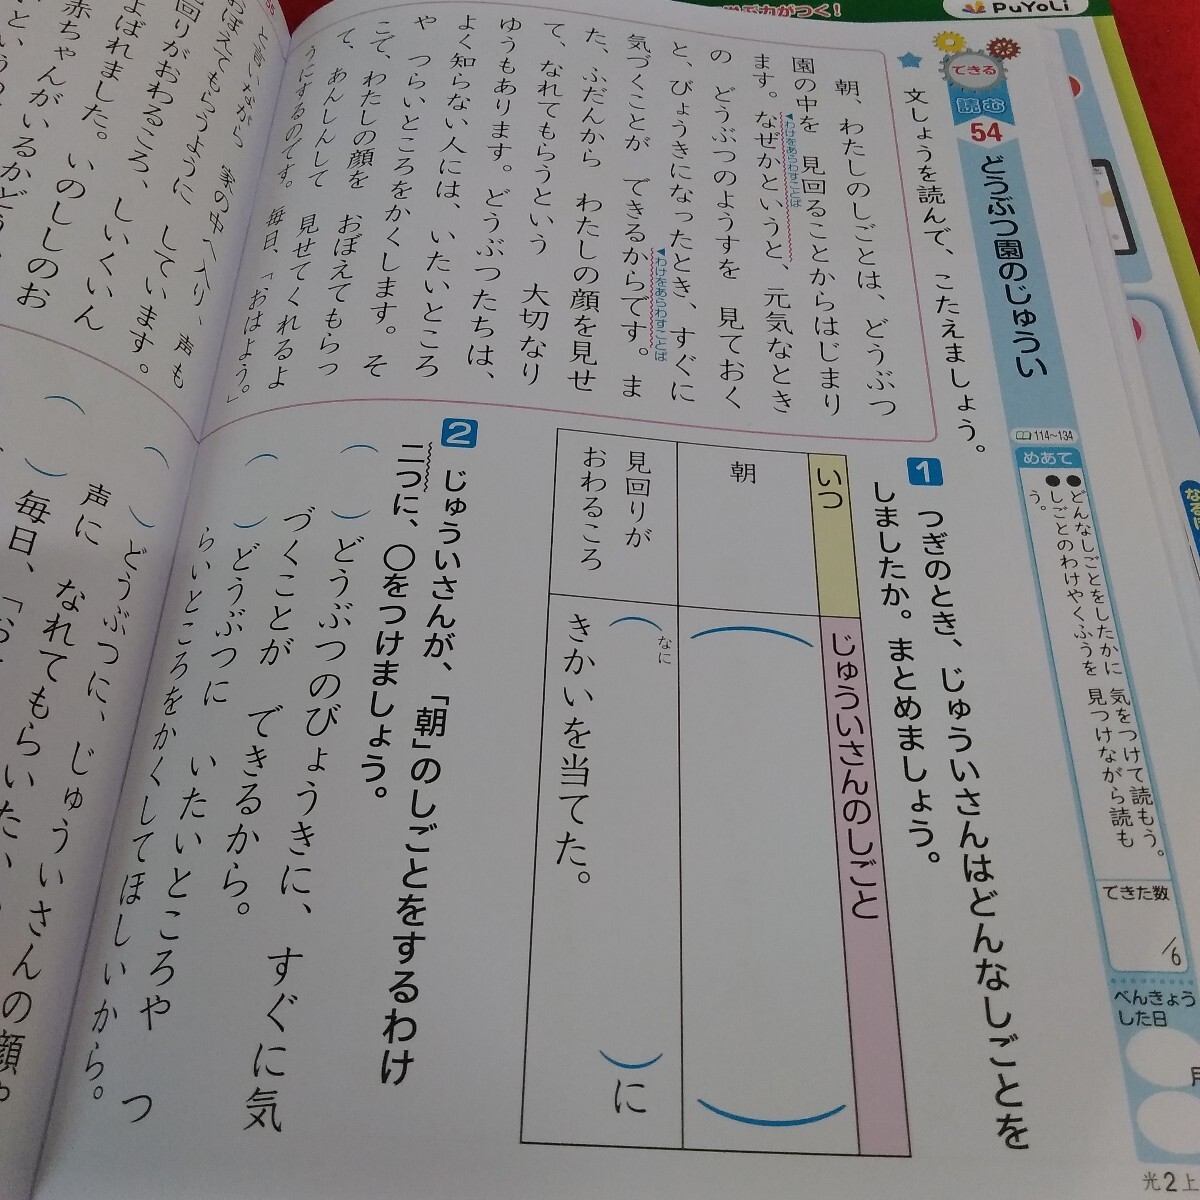 学ぶ力がつく！
PUYOLi
できる
読む
54
どうぶつ園のじゅうい
114~134
めあて
●どんなしごとをしたかに　気をつけて読もう。
●しごとのわけやくふうを　見つけながら読も
う。
できた数
/6
べんきょう
した日
月
光2上
★文しょうを読んで、こたえましょう。
朝、わたしのしごとは、どうぶつ
園の中を　見回ることからはじまり
ます。なぜかというと、元気なとき
わけをあらわすことば
の　どうぶつのようすを　見ておく
と、びょうきになったとき、すぐに
気づくことが　できるからです。ま
わけをあらわすことば
た、ふだんから　わたしの顔を見せ
て、なれてもらうという　大切なり
ゆうもあります。どうぶつたちは、
よく知らない人には、いたいところ
や　つらいところをかくします。そ
こで、わたしの顔を　おぼえてもらっ
て、あんしんして　見せてくれるよ
うにするのです。毎日、「おはよう。」
と言いながら　家の中へ入り、声も
おぼえてもらうように　しています。
見回りがおわるころ、しいくいん
よばれました。いのししのお
赤ちゃんがいるかどう
1　つぎのとき、じゅういさんはどんなしごとを
しましたか。まとめましょう。
いつ
じゅういさんのしごと
朝
（　）
見回りが
おわるころ
（　）に
なに
きかいを当てた。
2　じゅういさんが、「朝」のしごとをするわけ
二つに、○をつけましょう。
（　）どうぶつのびょうきに、すぐに気
づくことが　できるから。
（　）どうぶつに　いたいところや　つ
らいところをかくしてほしいから。
（　）どうぶつに、じゅういさんの顔や
声に　なれてもらいたい
毎日、「お